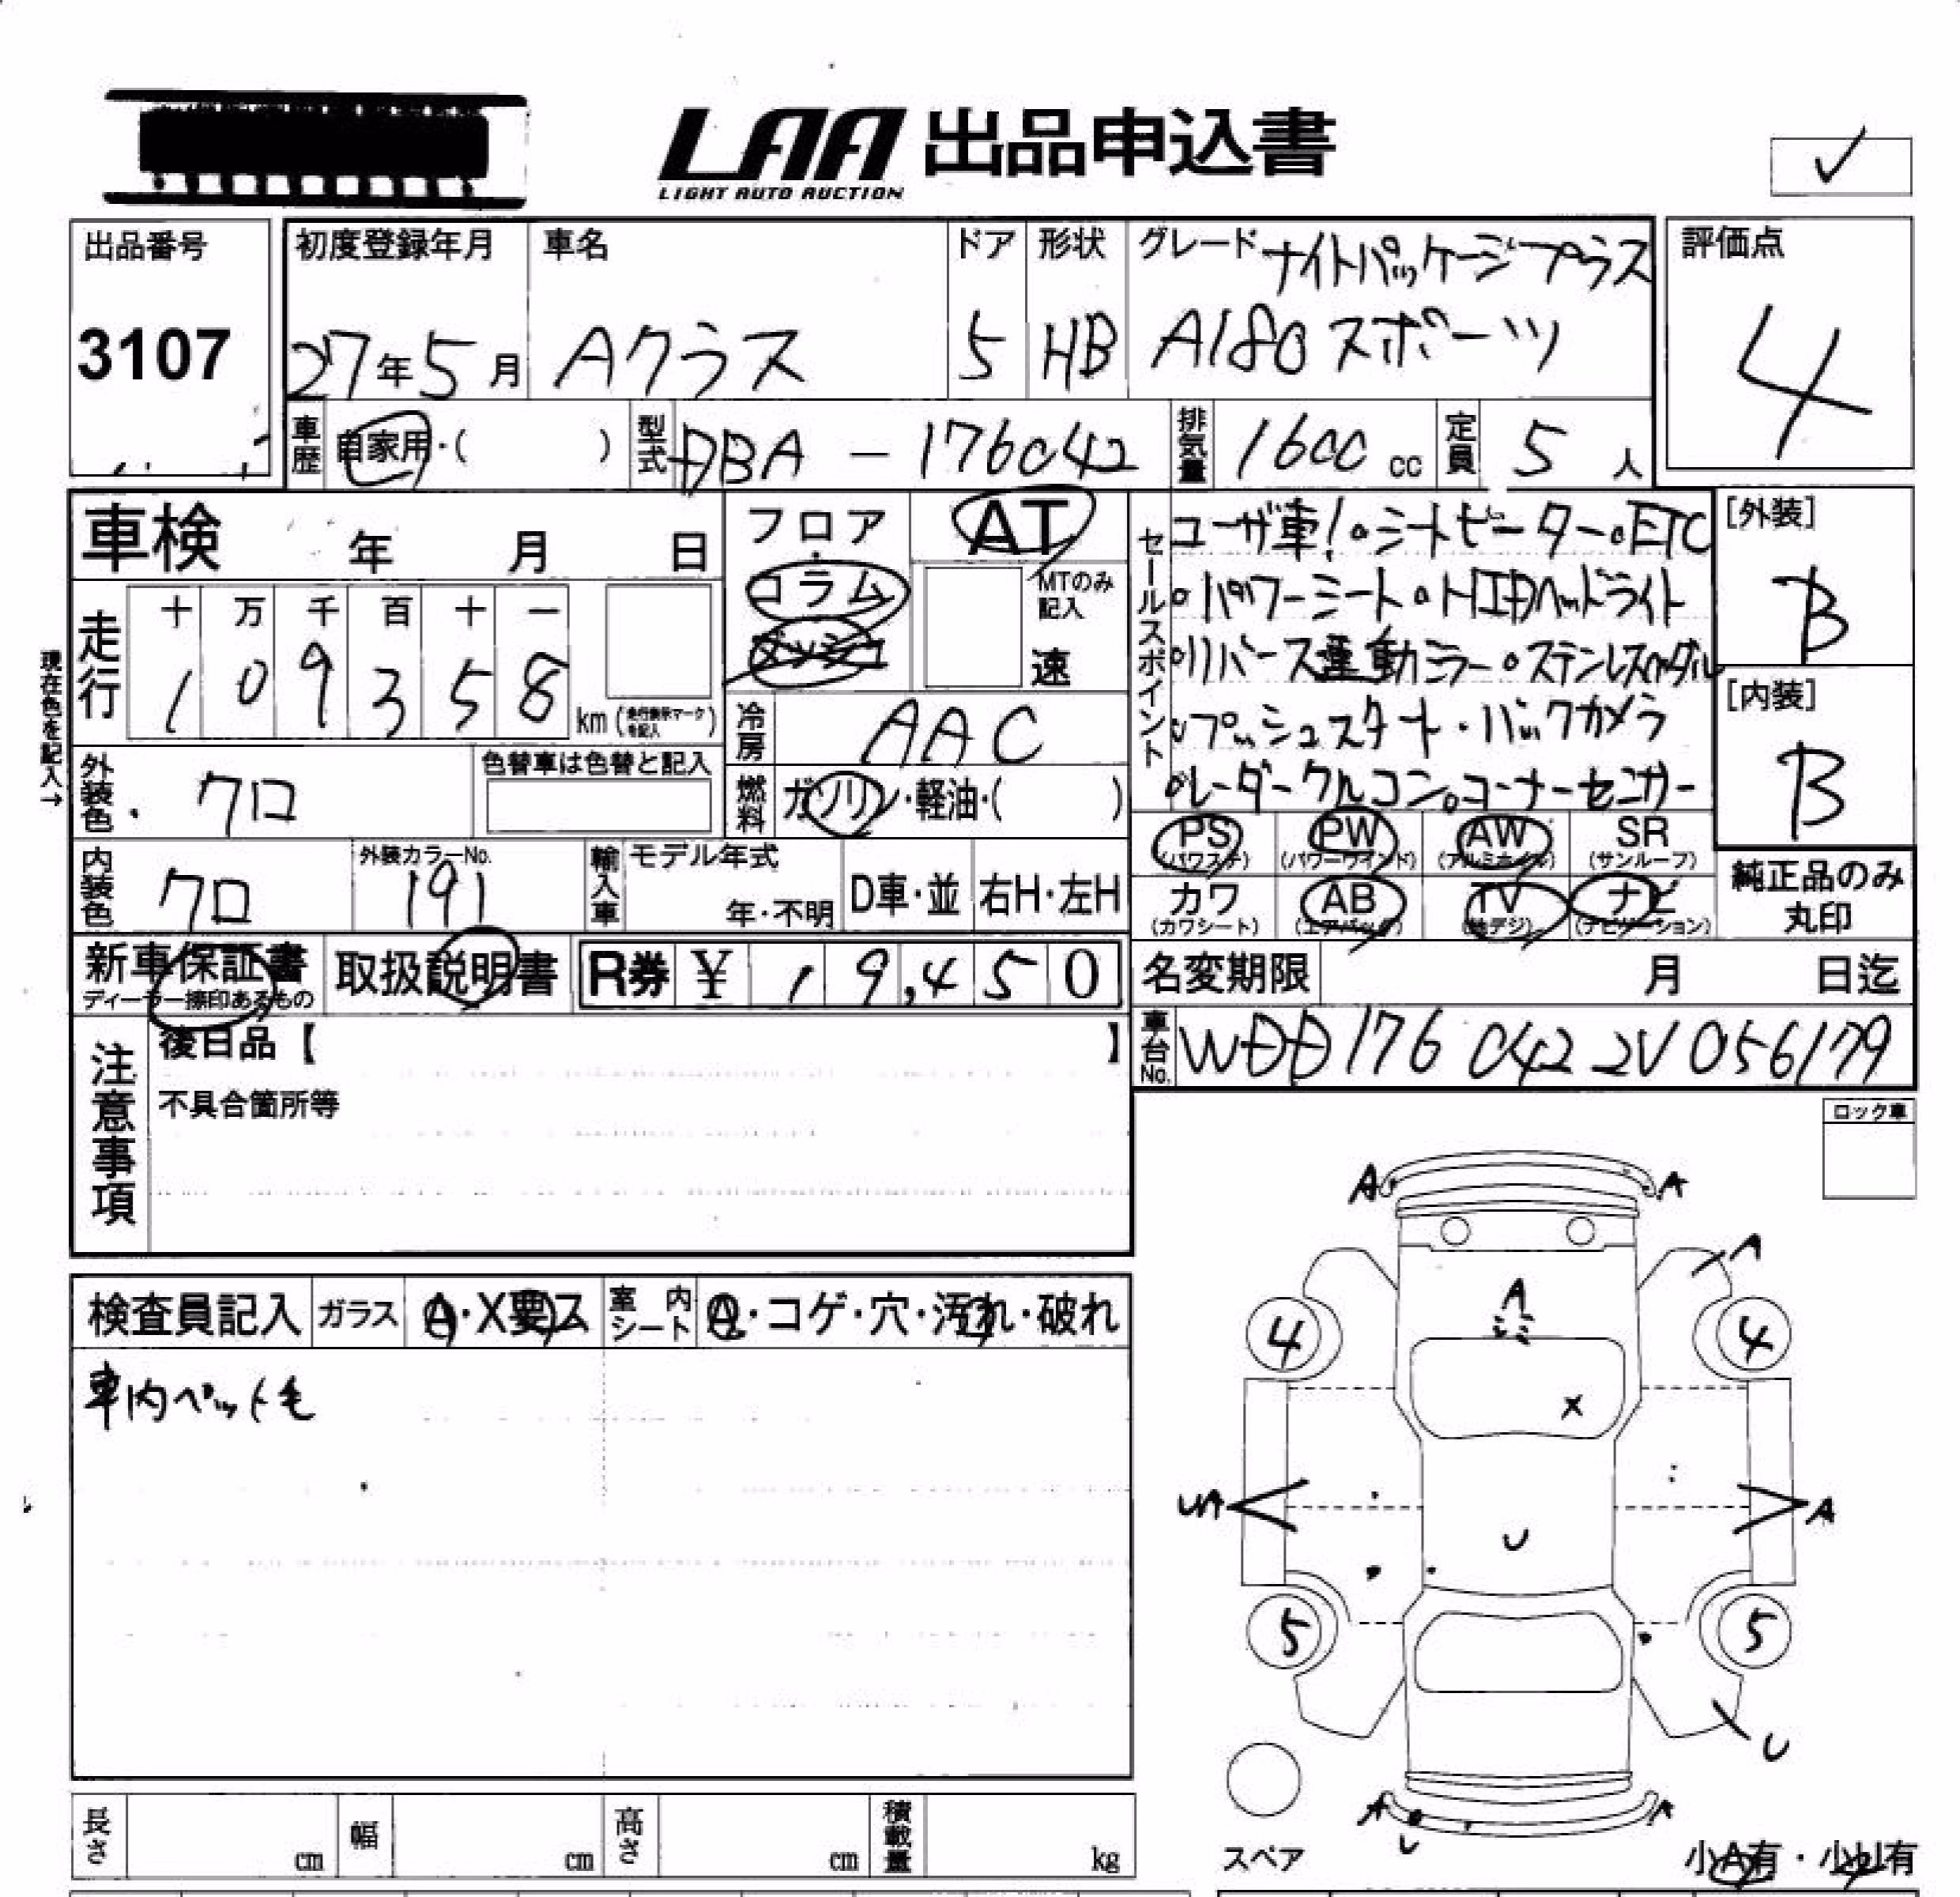 LAA 出品申込書
LIGHT AUTO AUCTION
✓
出品番号
3107
初度登録年月
27年5月
車名
Aクラス
ドア
5
形状
HB
グレード ナイトパッケージプラス
A180スポーツ
評価点
4
車歴 自家用・( )
型式 DBA-176042
排気量 1600 cc
定員 5人
車検 年 月 日
フロア・コラム ダッシュ
AT
MTのみ記入
速
現在色を記入→
走行
十 万 千 百 十 一
1 0 9 3 5 8
km(走行表示マークを記入)
冷房 AAC
外装色 クロ
色替車は色替と記入
燃料 ガソリン・軽油・( )
内装色 クロ
外装カラーNo.
191
輸入車 モデル年式
年・不明
D車・並
右H・左H
セールスポイント
ユーザ車!。シートヒーター。ETC
。パワーシート。HIDヘッドライト
。リバース運動ミラー。ステンレスペダル
。プッシュスタート・バックカメラ
。レーダークルコン。コーナーセンサー
[外装]
B
[内装]
B
PS
(パワステ)
PW
(パワーウインド)
AW
(アルミホイル)
SR
(サンルーフ)
カワ
(カワシート)
AB
(エアバッグ)
TV
(地デジ)
ナビ
(ナビゲーション)
純正品のみ
丸印
新車保証書
ディーラー捺印あるもの
取扱説明書
R券 ¥ 19,450
名変期限 月 日迄
車台No. WDD176 042 2V 056179
注意事項
後日品【 】
不具合箇所等
ロック車
検査員記入
ガラス A・X要ス
室内シート A・コゲ・穴・汚れ・破れ
車内ペット毛
A A
A
A
シミ
4 4
X
UA A
U
5 5
U
A A
U
スペア
小A有・小U有
長さ cm
幅 cm
高さ cm
積載量 kg